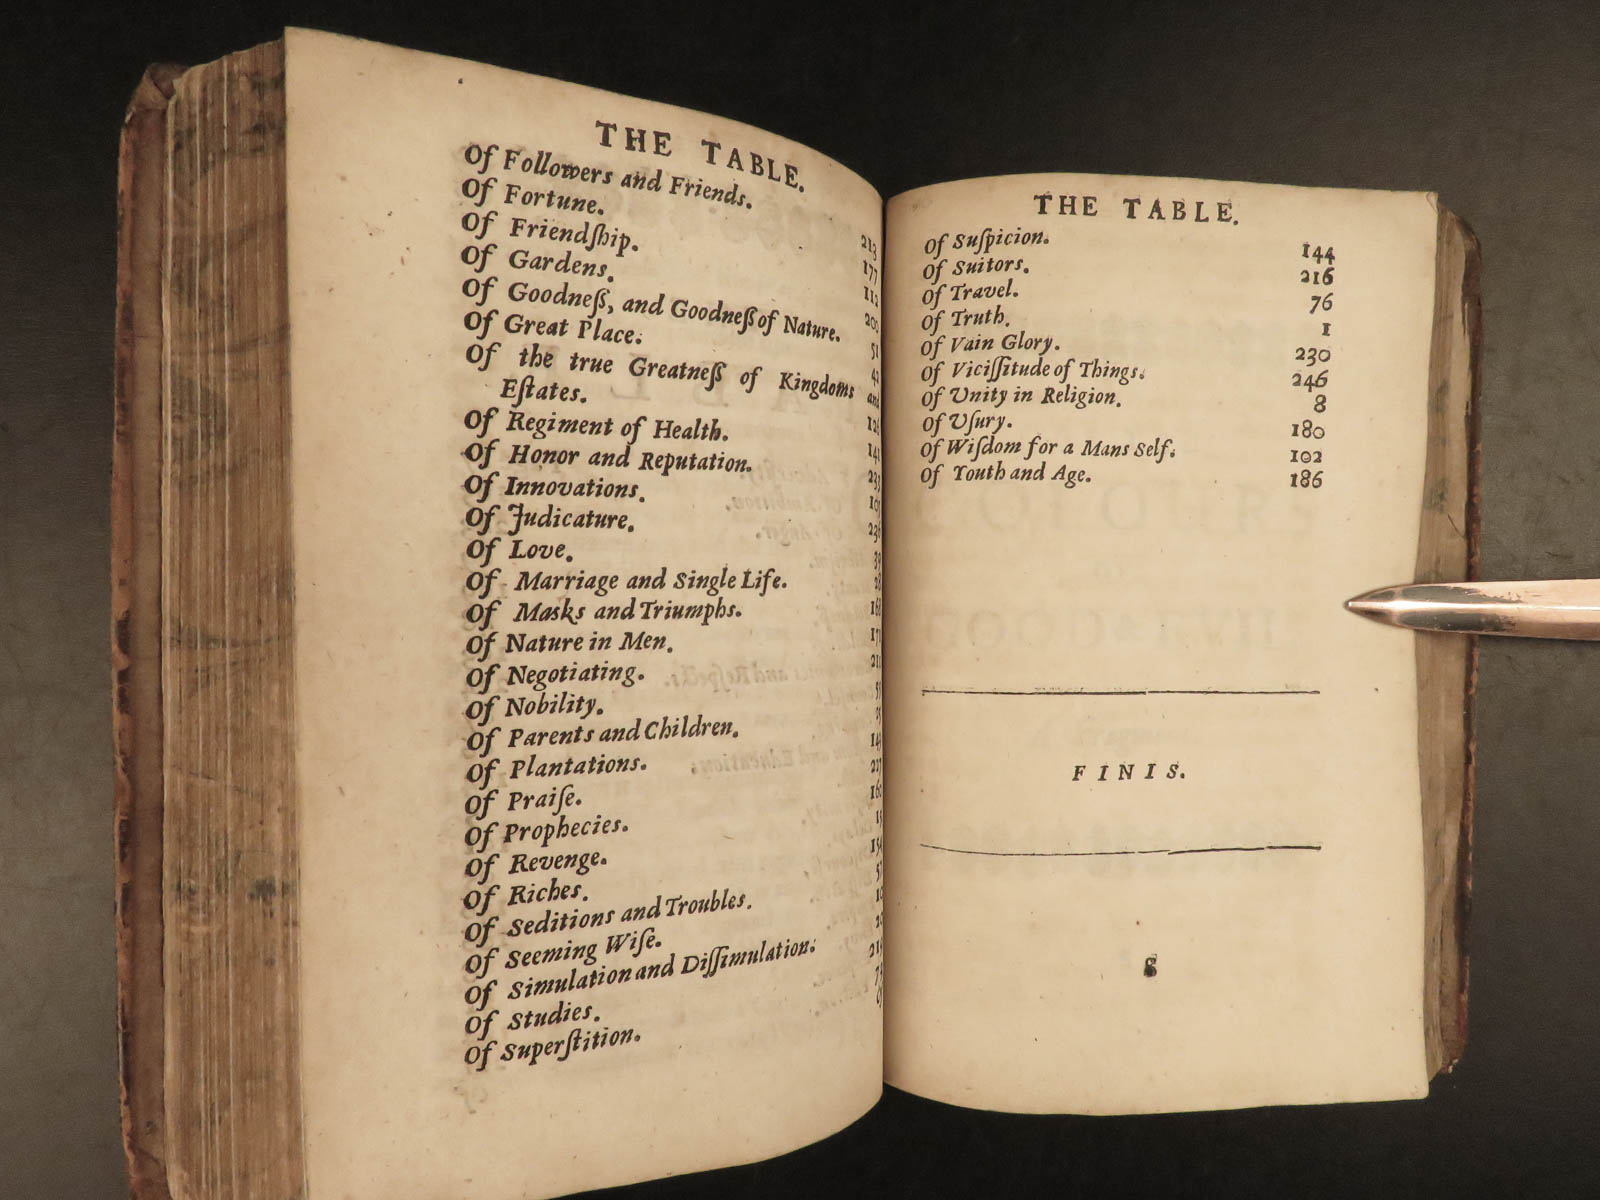 THE TABLE.
Of Followers and Friends. 213
Of Fortune. 177
Of Friendſhip.
Of Gardens. 200
Of Goodneſs, and Goodneſs of Nature. 51
Of Great Place.
Of the true Greatneſs of Kingdoms and
Eſtates.
Of Regiment of Health.
Of Honor and Reputation. 233
Of Innovations.
Of Judicature.
Of Love. 39
Of Marriage and Single Life.
Of Masks and Triumphs.
Of Nature in Men.
Of Negotiating.
Of Nobility.
Of Parents and Children.
Of Plantations.
Of Praiſe.
Of Prophecies.
Of Revenge.
Of Riches.
Of Seditions and Troubles.
Of Seeming Wiſe.
Of Simulation and Diſſimulation.
Of Studies.
Of Superſtition.
THE TABLE.
Of Suſpicion. 144
Of Suitors. 216
Of Travel. 76
Of Truth. 1
Of Vain Glory. 230
Of Viciſſitude of Things. 246
Of Unity in Religion. 8
Of Uſury. 180
Of Wiſdom for a Mans Self. 102
Of Youth and Age. 186
FINIS.